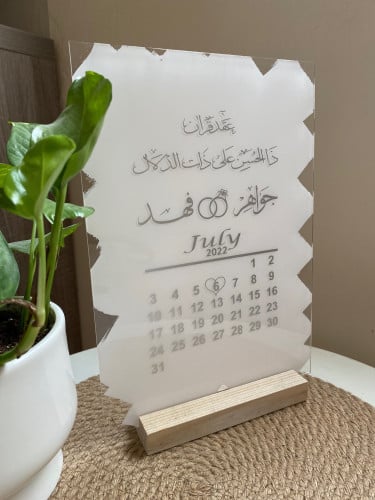 عقد قران
ذا الحسن على ذات الدلال
جواهر فهد
July
2022
1 2
3 4 5 6 7 8 9
10 11 12 13 14 15 16
17 18 19 20 21 22 23
24 25 26 27 28 29 30
31